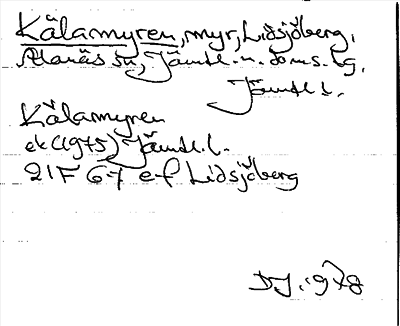 Kälamyren, myr, Lidsjöberg,
Alanäs sn, Jämtl. n. doms. tg,
Jämtl l.
Kälamyren
ek (1975) Jämtl. l.
21F 6f ef Lidsjöberg
DJ. 1978